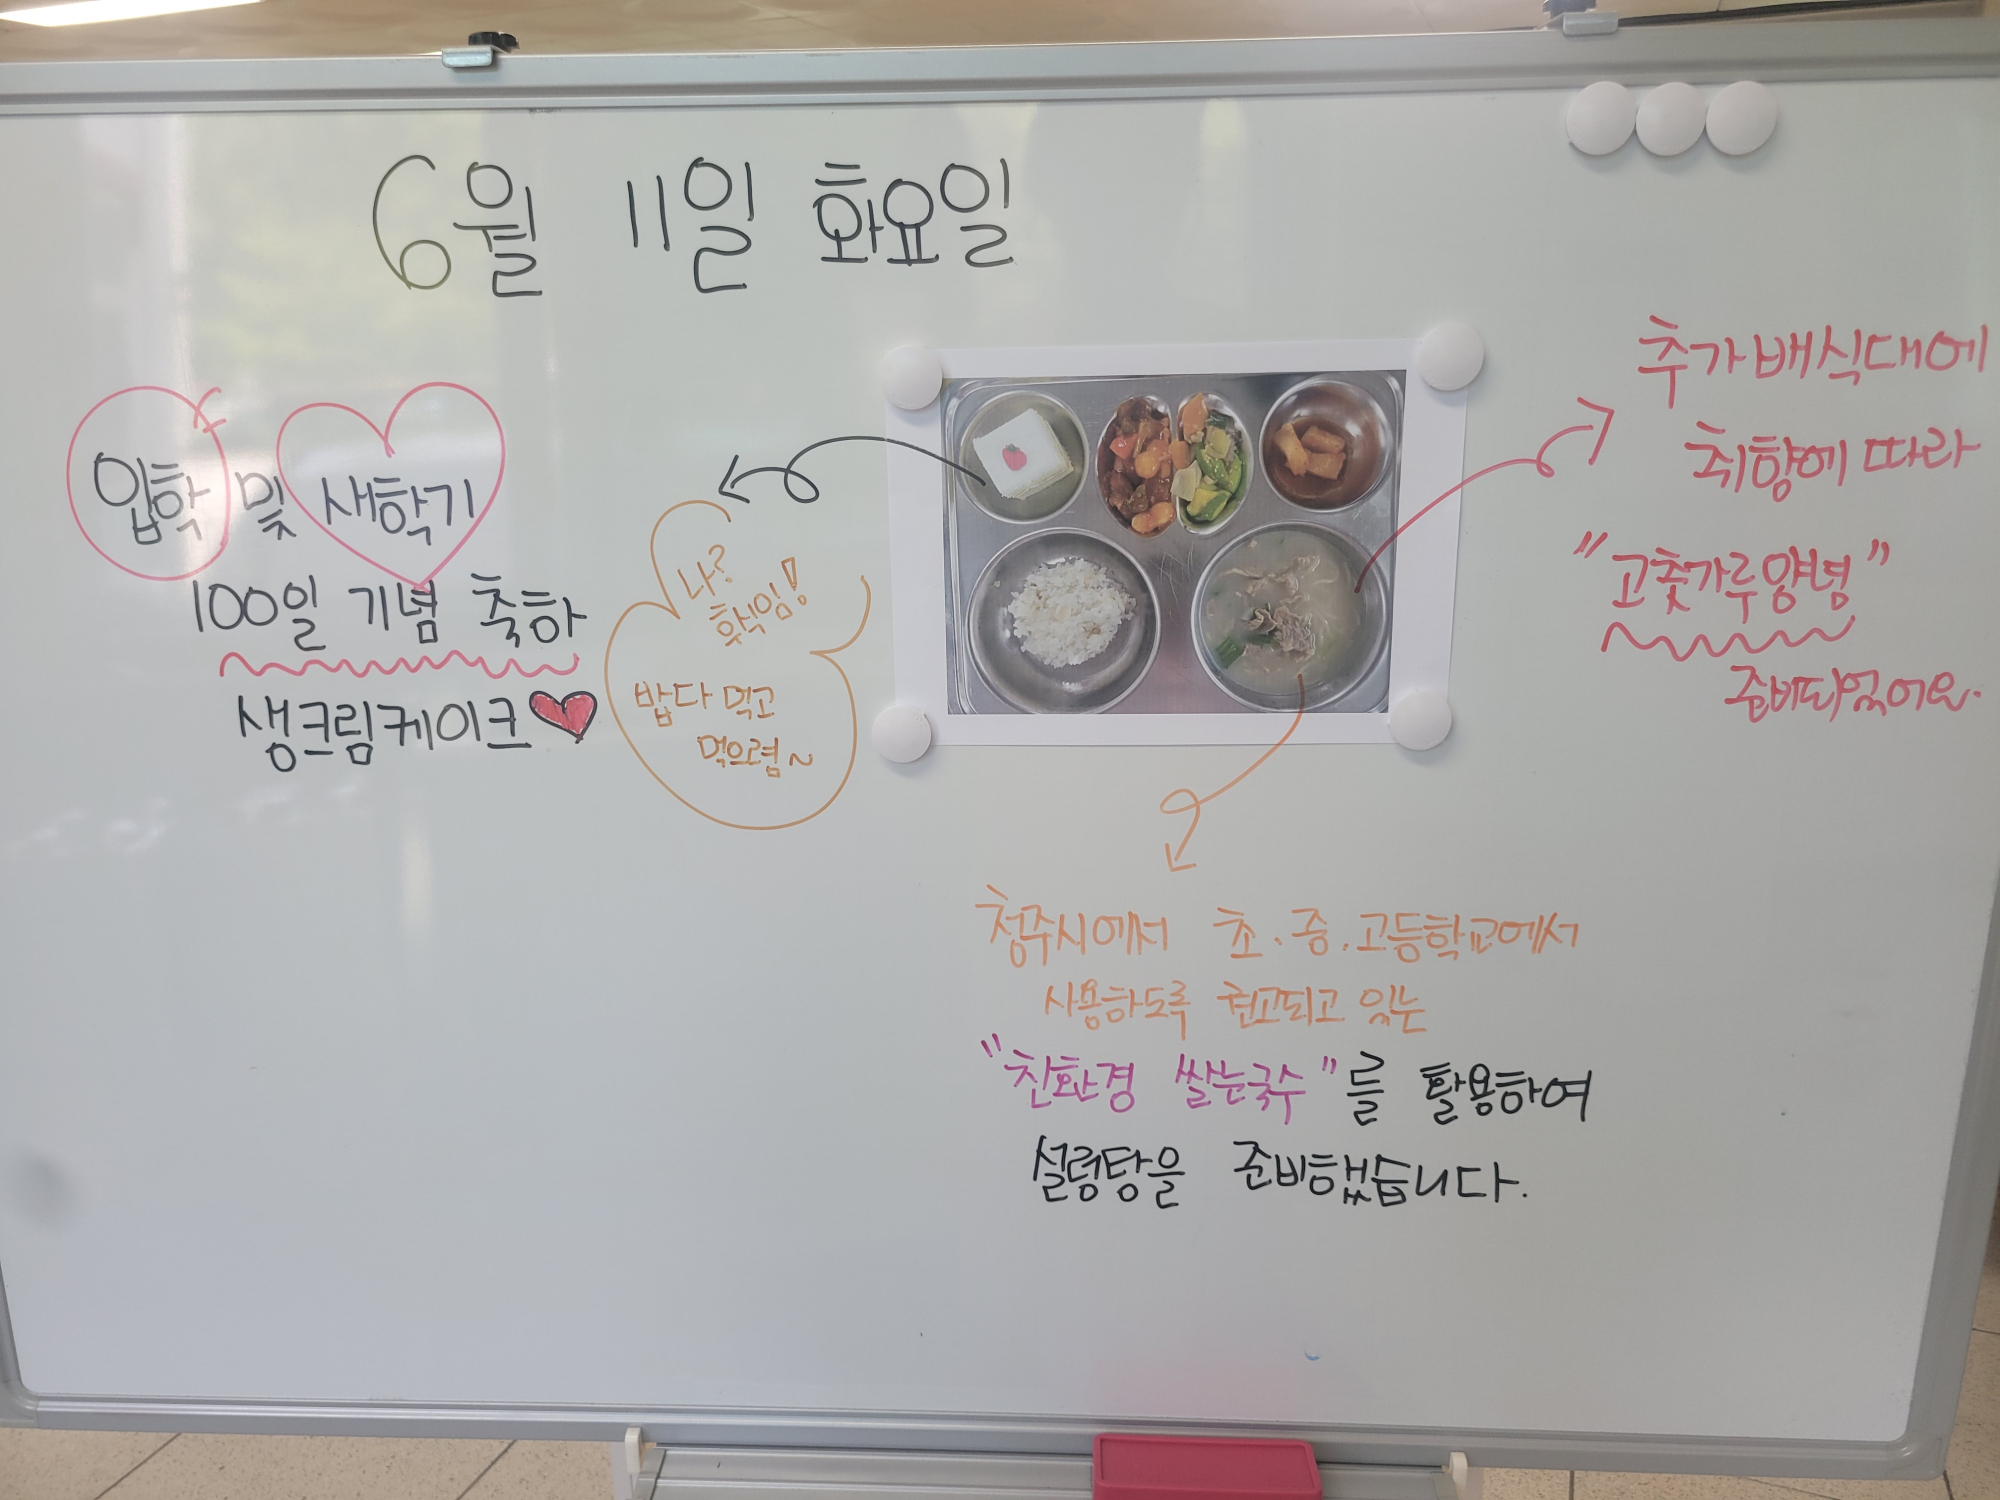 6월 11일 화요일
입학 및 새학기
100일 기념 축하
생크림케이크
나?
훅임!
밥 다 먹고
먹으렴~
추가배식대에
취향에 따라
"고춧가루양념"
준비되었어요.
청주시에서 초.중.고등학교에서
사용하도록 권고되고 있는
"친환경 쌀눈국수"를 활용하여
설렁탕을 준비했습니다.